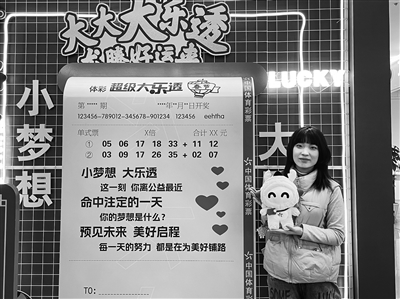 大大大乐透
龙腾好运来
LUCKY
小梦想
大
体彩 超级大乐透
第 ***** 期 ****年**月**日开奖
123456-789012-345678-901234 123456 eehtha
单式票 X倍 合计 XX 元
① 05 06 17 18 33 + 11 12
② 03 09 17 26 35 + 02 07
小梦想 大乐透
这一刻 你离公益最近
命中注定的一天
你的梦想是什么?
预见未来 美好启程
每一天的努力 都是在为美好铺路
TO:
中国体育彩票
中国体育彩票